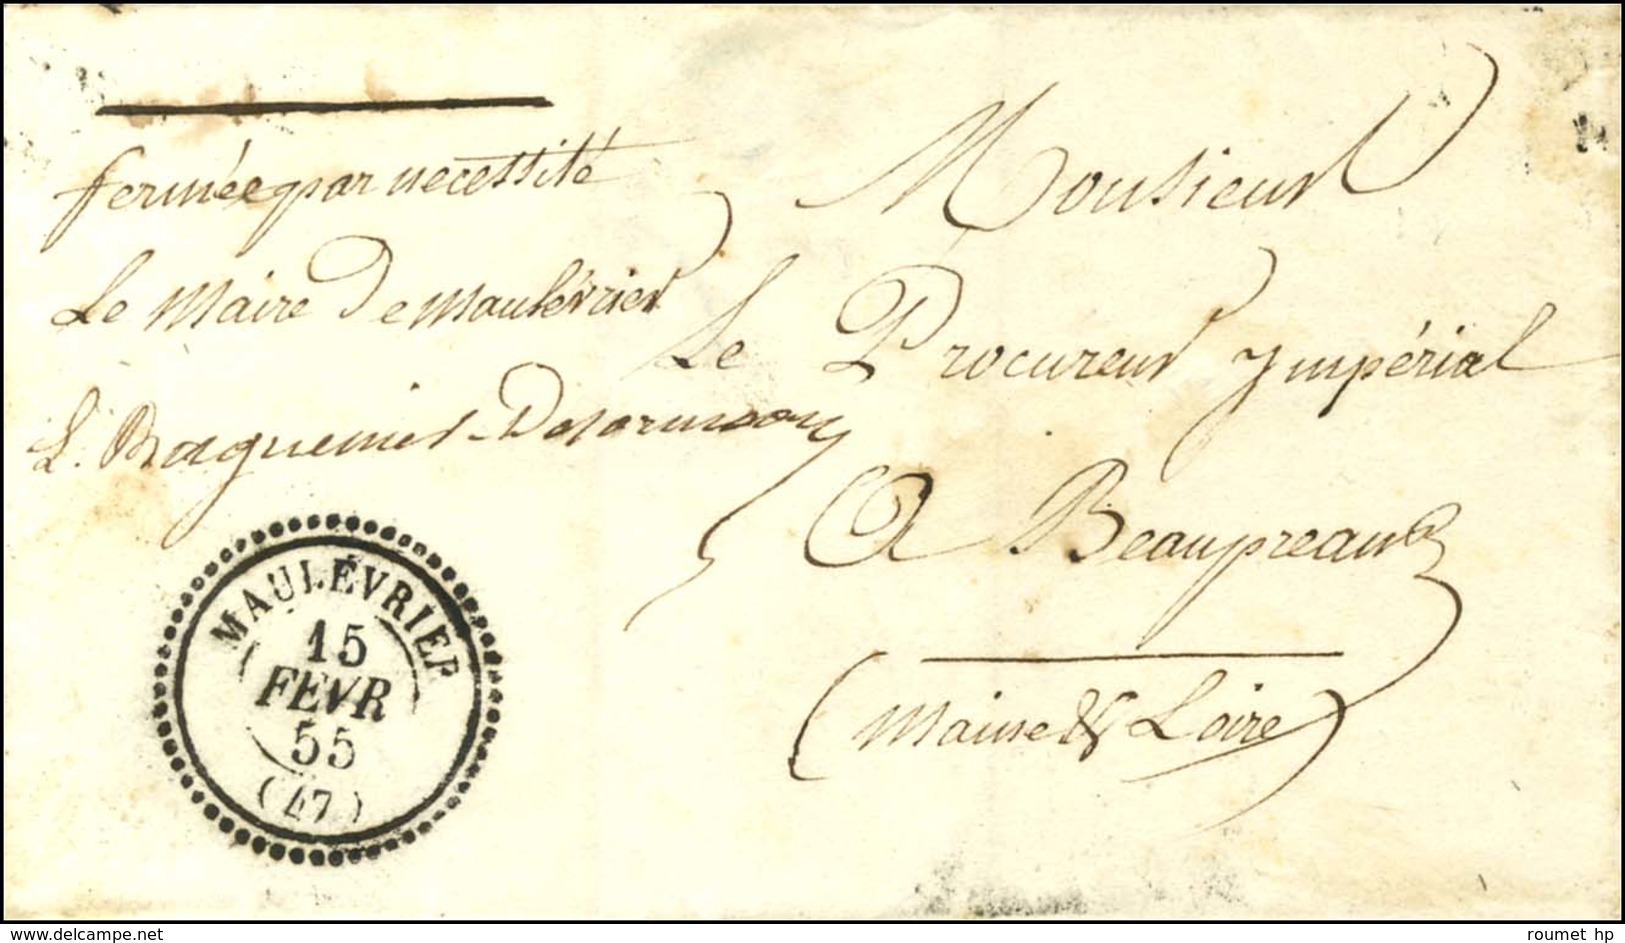 fermée par necessité
Le Maire De Maulévrier
Monsieur
Le Procureur Impérial
A Beaupreau
(Maine & Loire)
MAULÉVRIER
15
FEVR
55
(47)
www.delcampe.net
roumet hp